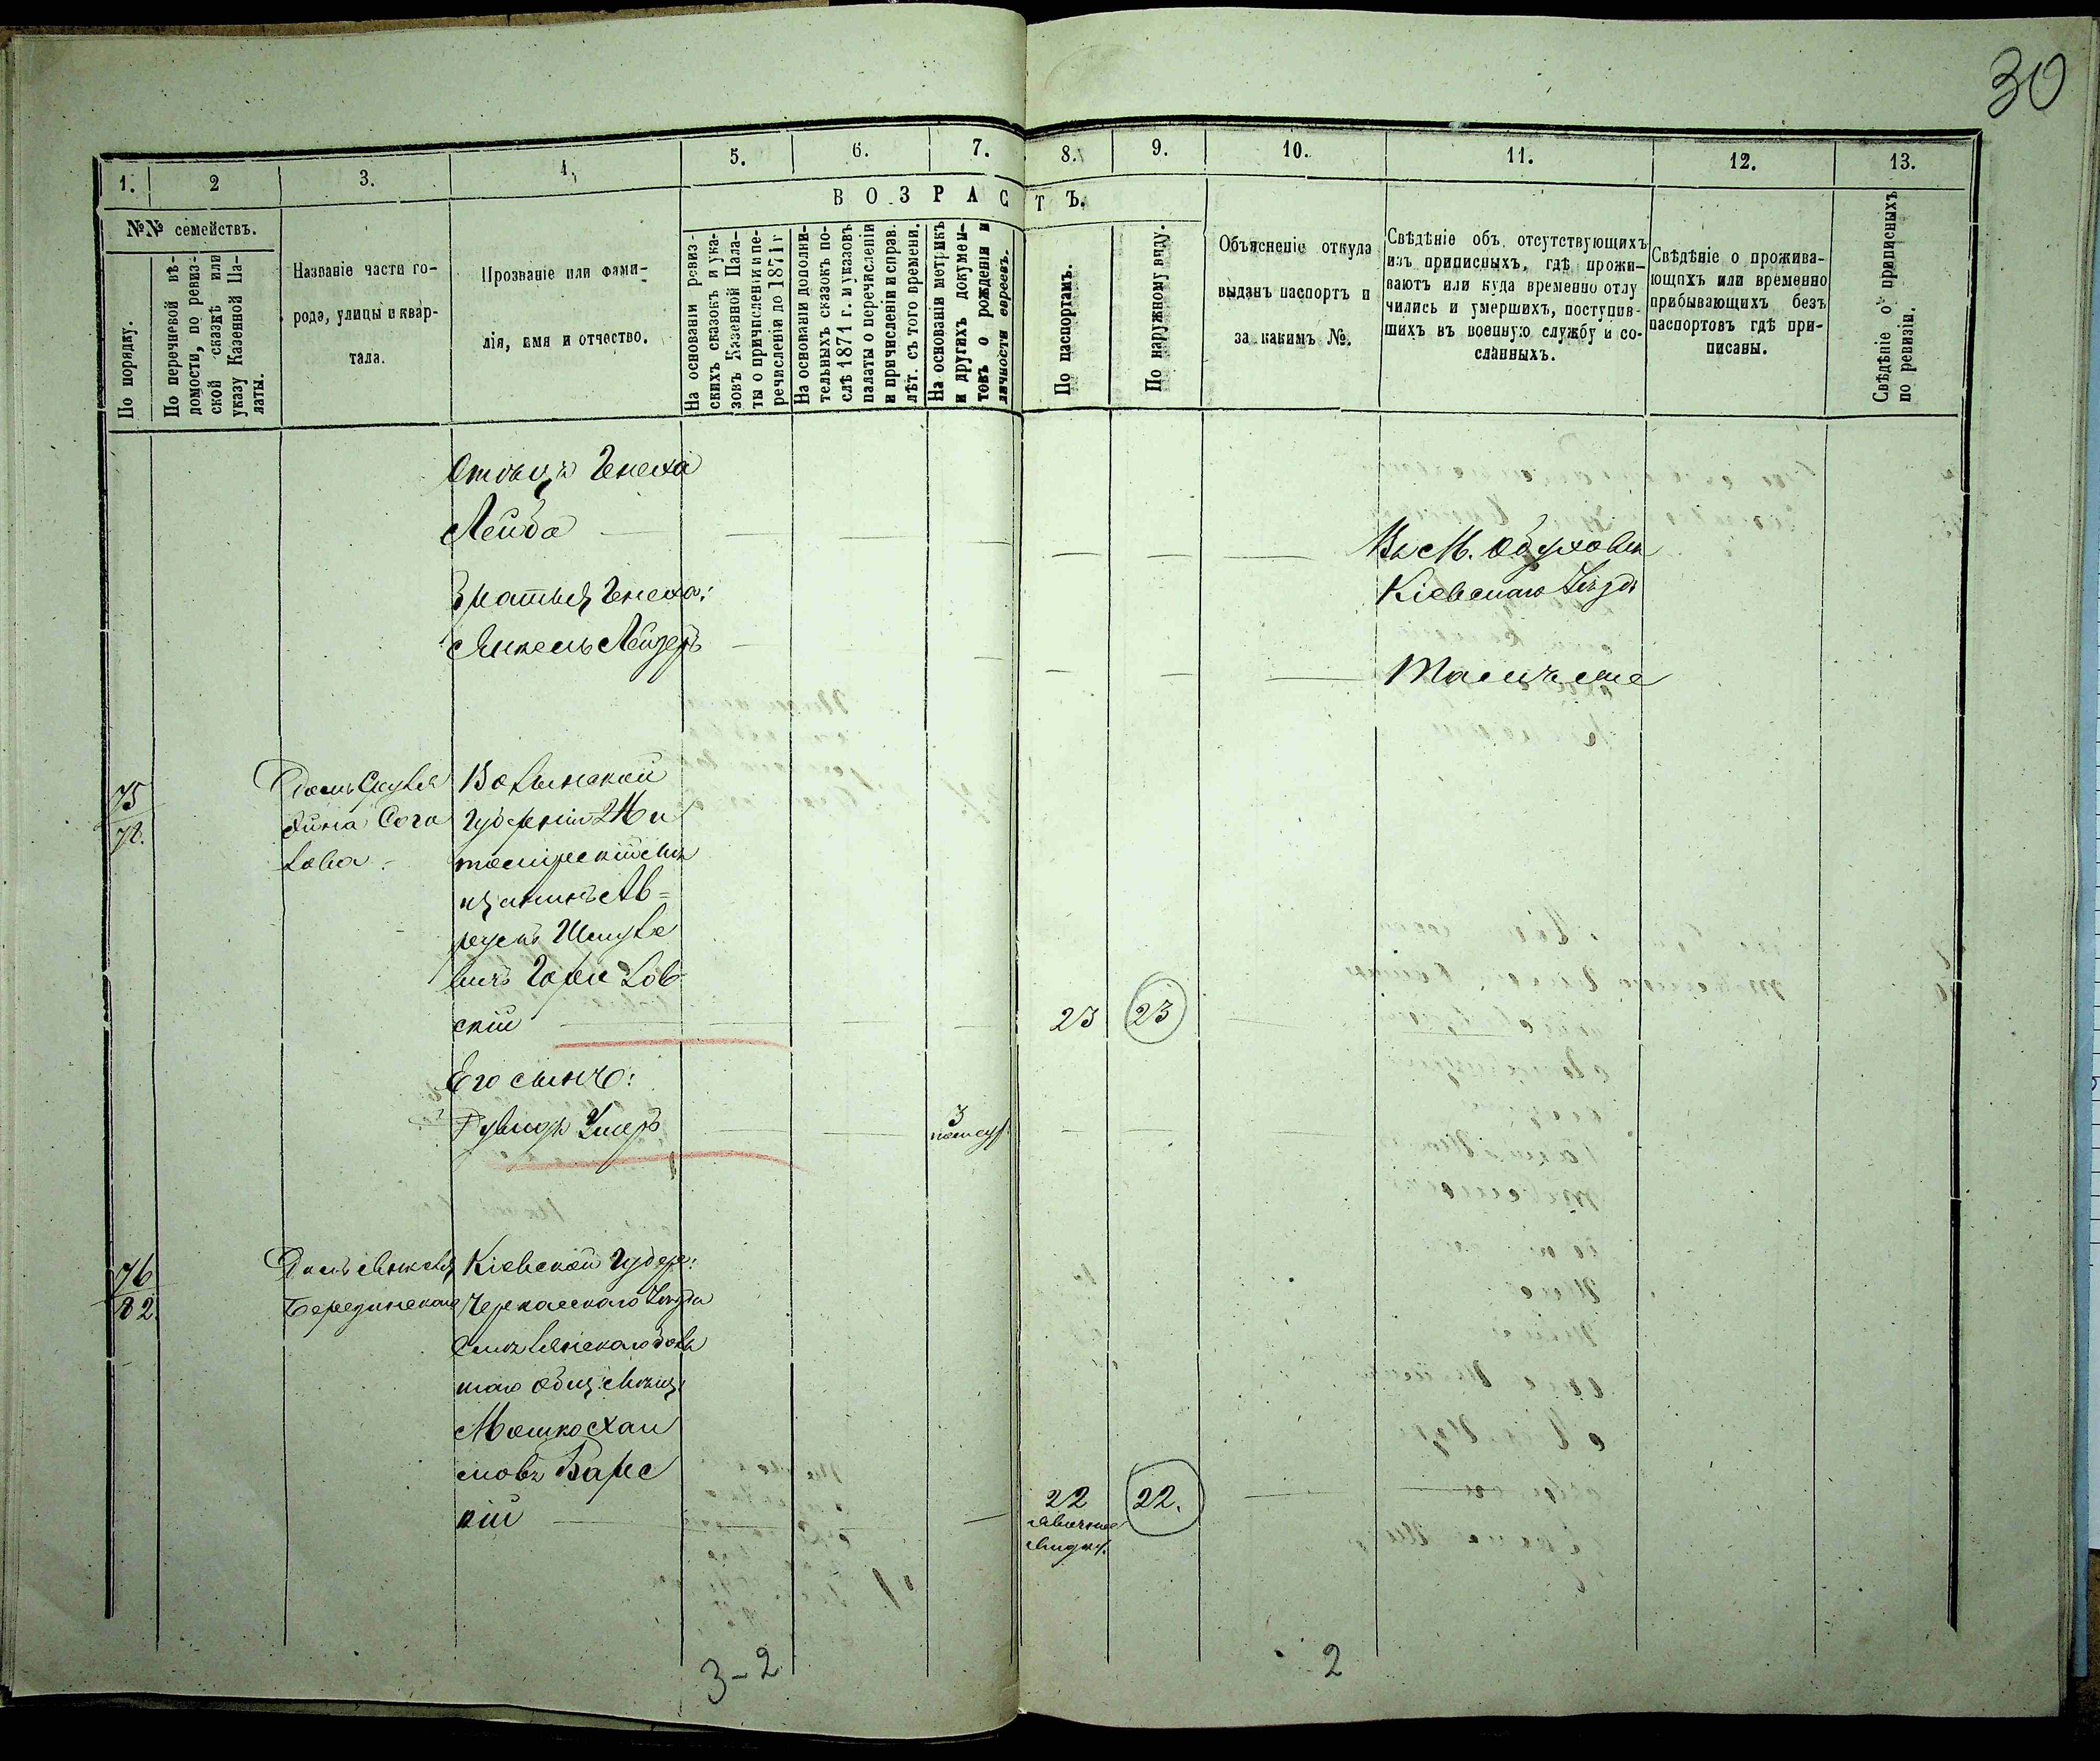 30
1.
2
3.
4.
5.
6.
7.
8.
9.
10.
11.
12.
13.
№№ семействъ.
По порядку.
По перечневой вѣ-
домости, по ревиз-
ской сказкѣ или
указу Казенной Па-
латы.
Названіе части го-
рода, улицы и квар-
тала.
Прозваніе или фами-
лія, имя и отчество.
ВОЗРАСТЪ.
На основаніи ревиз-
скихъ сказокъ и ука-
зовъ Казенной Пала-
ты о причисленіи и пе-
речисленіи до 1871 г
На основаніи дополни-
тельныхъ сказокъ по-
слѣ 1871 г. и указовъ
палаты о перечисленіи
и причисленіи и справ.
лѣт. съ того времени.
На основаніи метрикъ
и другихъ докумен-
товъ о рожденіи и
личности евреевъ.
По паспортамъ.
По наружному виду.
Объясненіе откуда
выданъ паспортъ и
за какимъ №.
Свѣдѣніе объ отсутствующихъ
изъ приписныхъ, гдѣ прожи-
ваютъ или куда временно отлу
чились и умершихъ, поступив-
шихъ въ военную службу и со-
сланныхъ.
Свѣдѣніе о прожива-
ющихъ или временно
прибывающихъ безъ
паспортовъ гдѣ при-
писаны.
Свѣдѣніе о приписныхъ
по ревизіи.
Отецъ Генеха
Лейба
Въ М. Обуховкѣ
Кіевскаго Уѣзда
Братья Генеха:
Янкель Лейзеръ
Тамъ же
75
Домъ
Волынской
Губерніи Жи
томірскій мѣ
щанинъ Ав-
румъ Шмуле
вичъ
скій
23
23
Его сынъ:
Рувинъ Умеръ
3
76
82
Домъ
Кіевской Губер:
Черкасскаго Уѣзда
Смѣлянскаго
Мошко Хаи
мовъ Барс
кій
22
22.
3-2
2